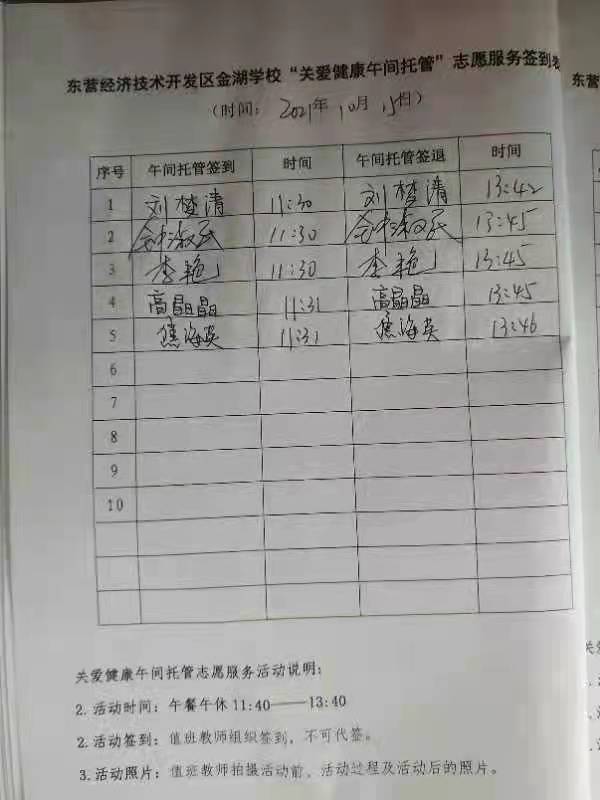 东营经济技术开发区金湖学校“关爱健康午间托管”志愿服务签到表
（时间：2021年10月15日）
序号 午间托管签到 时间 午间托管签退 时间
1 刘梦清 11:30 刘梦清 13:42
2 11:30 13:45
3 李艳 11:30 李艳 13:45
4 高晶晶 11:31 高晶晶 13:45
5 焦海英 11:31 焦海英 13:46
6
7
8
9
10
关爱健康午间托管志愿服务活动说明：
2.活动时间：午餐午休11:40——13:40
2.活动签到：值班教师组织签到，不可代签。
3.活动照片：值班教师拍摄活动前、活动过程及活动后的照片。
东营